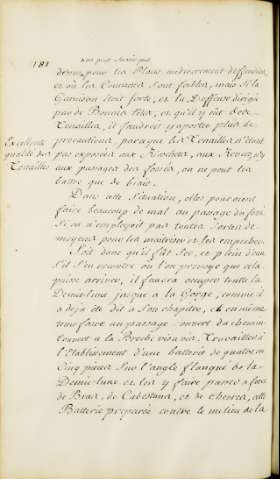 188
dehors, pour les Places médiocrement deffendues
et où les Courtines sont foibles, mais si la
Garnison étoit forte, et la Deffense dirigée
par de Bonnes têtes, et qu'il y eut des
Tenailles, il faudroit y aporter plus de
precautions, parceque les Tenailles n'étant
Excellente
qualité des
Tenailles
pas exposées aux Ricochets, aux Revers, ny
aux passages des fossés, on ne peut les
battre que de biais.
Dans cette Situation, elles pouroient
faire beaucoup de mal au passage du fossé
Si on n'employoit pas toutes sortes de
moyens pour les maitriser et les empecher.
Soit donc qu'il fût Sec, et plein d'eau
S'il s'en rencontre où l'on prevoye que cela
puisse arriver, il faudra occuper toute la
Demie-lune jusque à la Gorge, comme il
a déja été dit a son chapitre, et en même
tems faire un passage Couvert du chemin
couvert a la Breche vis a vis. Travailler à
l'Etablissement d'une batterie de quatre ou
Cinq pieces Sur l'angle flanqué de la
Demie-lune et les y faire passer a force
de Bras, de Cabestans, et de chevres, cette
Batterie preparée contre le milieu de la